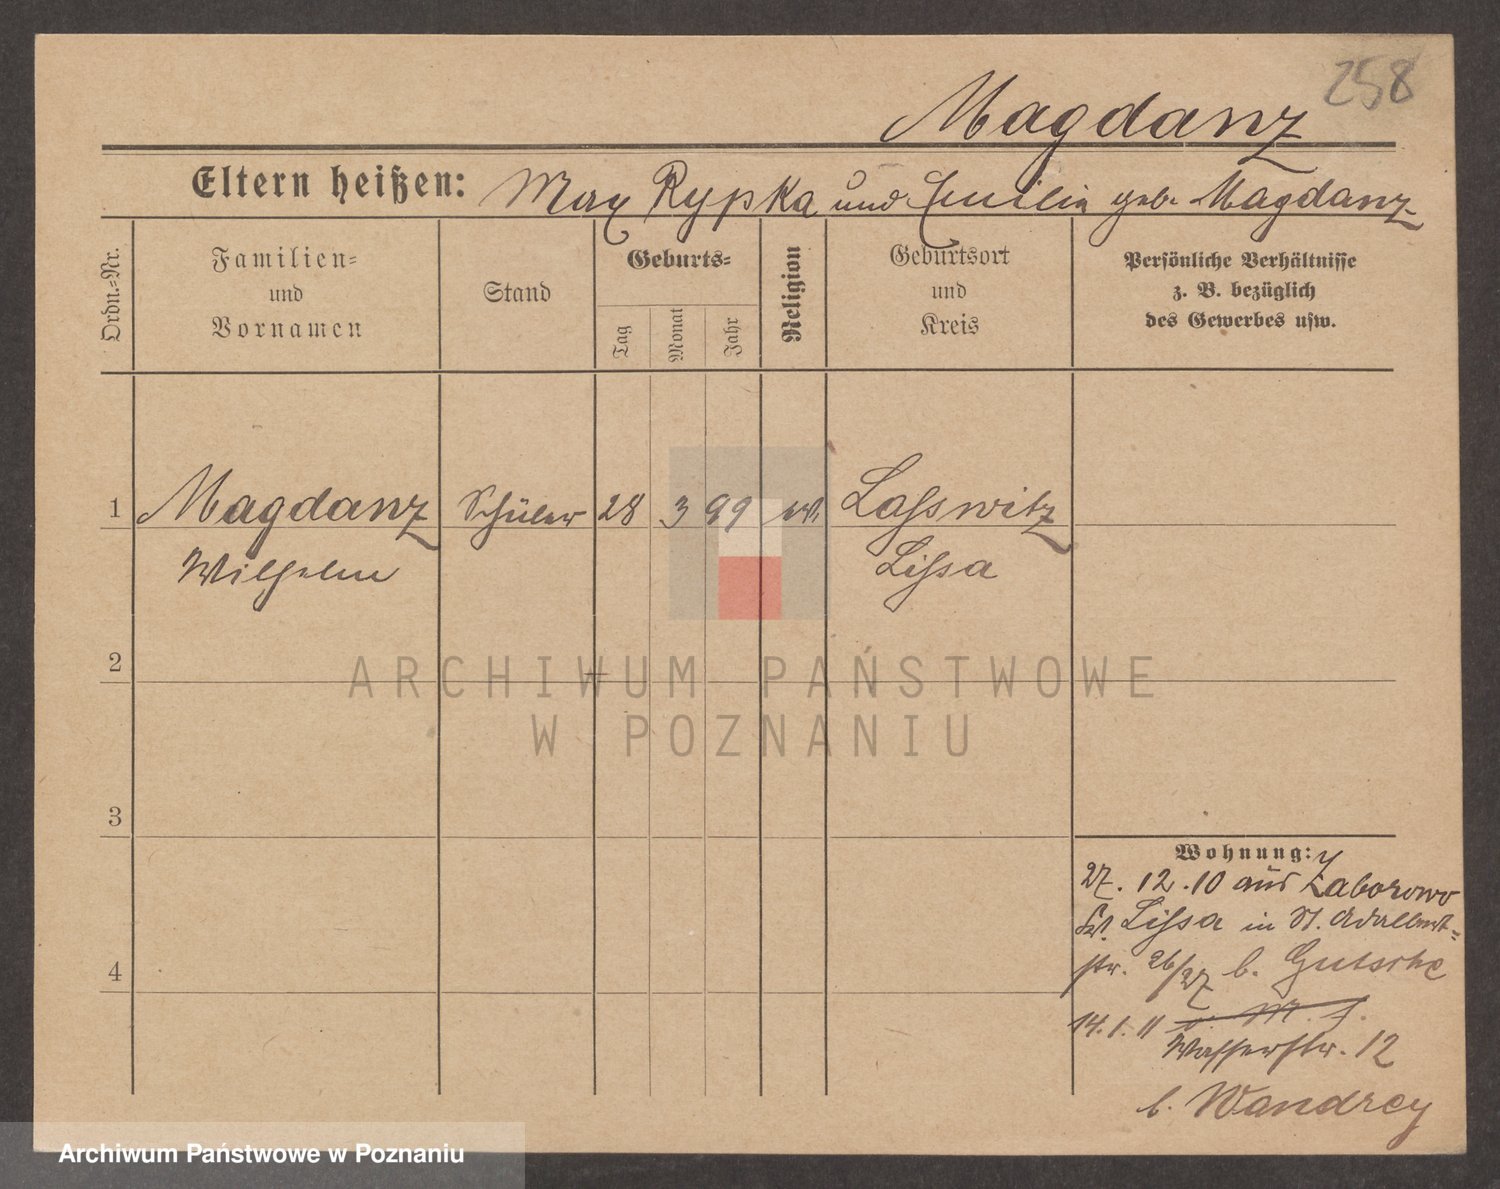 258
Magdanz
Eltern heißen: Max Rypka und Emilia geb. Magdanz
Ordn.-Nr.
Familien-
und
Vornamen
Stand
Geburts-
Tag
Monat
Jahr
Religion
Geburtsort
und
Kreis
Persönliche Verhältnisse
z. B. bezüglich
des Gewerbes usw.
1 Magdanz Schüler 28 3 99 ev. Lasswitz
Wilhelm Lissa
2
3
4
Wohnung:
27. 12. 10 aus Zaborowo
Lissa in St. Adalbert-
str. 26/27 b. Gutsche
14. 1. 11
Wasserstr. 12
b. Wandrey
ARCHIWUM PAŃSTWOWE
W POZNANIU
Archiwum Państwowe w Poznaniu